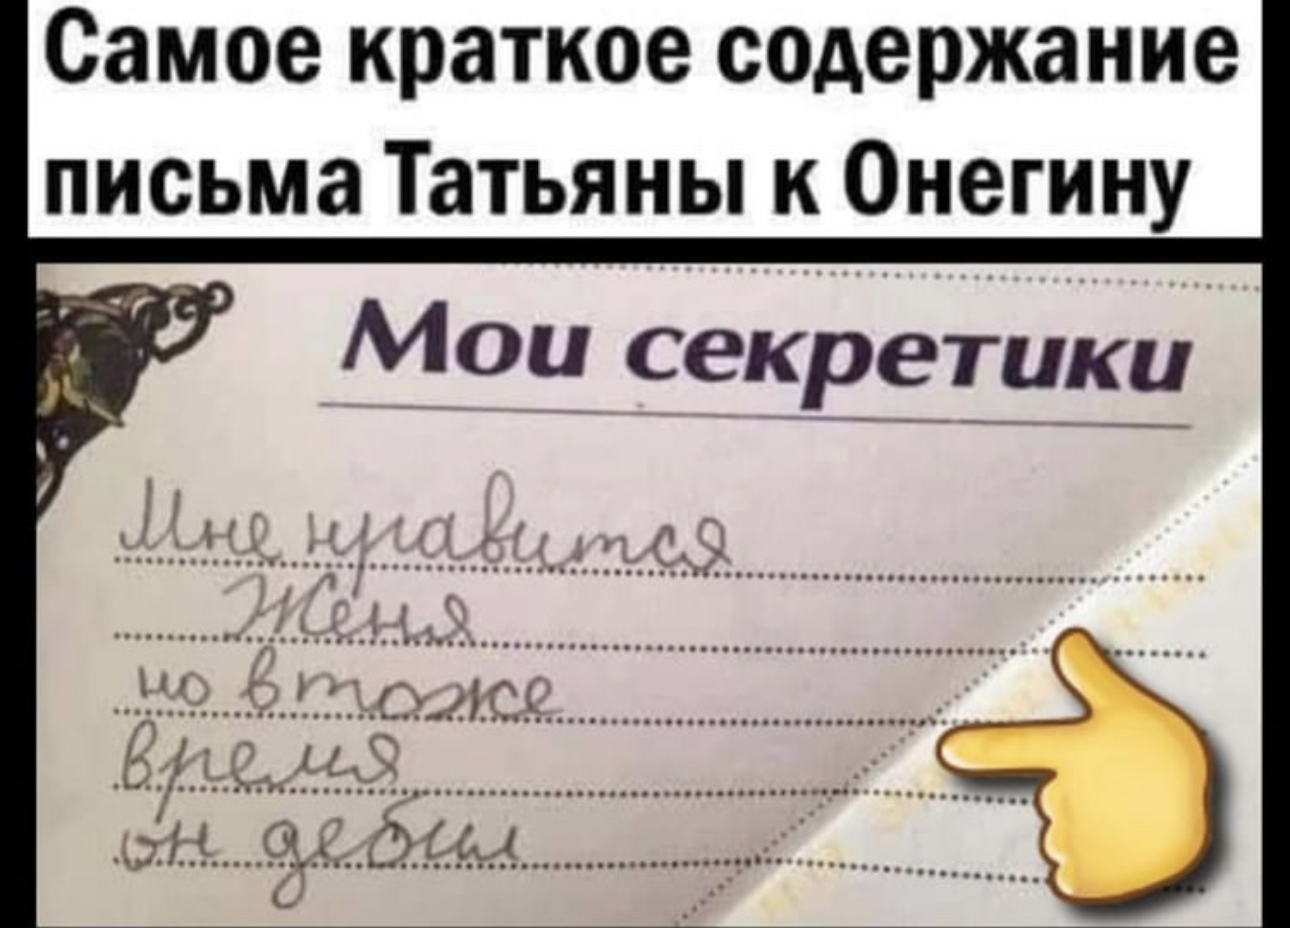 Самое краткое содержание
письма Татьяны к Онегину
Мои секретики
Мне нравится
Женя
но в тоже
время
он дебил